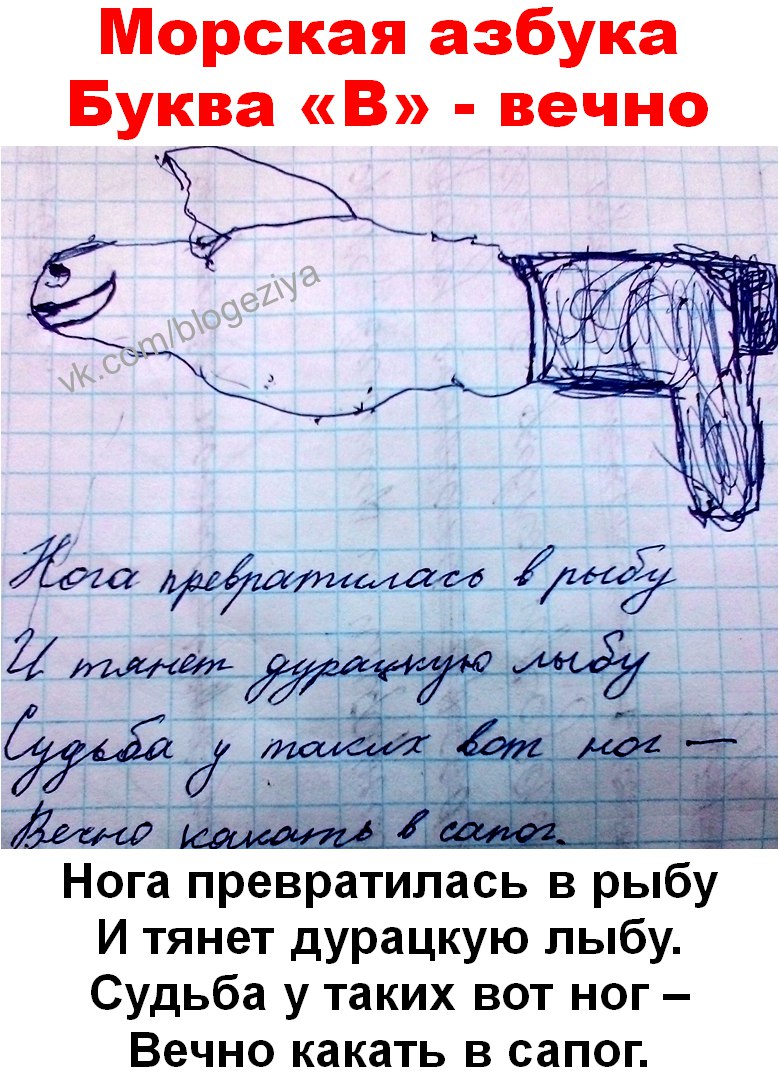 Морская азбука
Буква «В» - вечно
vk.com/blogeziya
Нога превратилась в рыбу
И тянет дурацкую лыбу
Судьба у таких вот ног —
Вечно какать в сапог.
Нога превратилась в рыбу
И тянет дурацкую лыбу.
Судьба у таких вот ног –
Вечно какать в сапог.